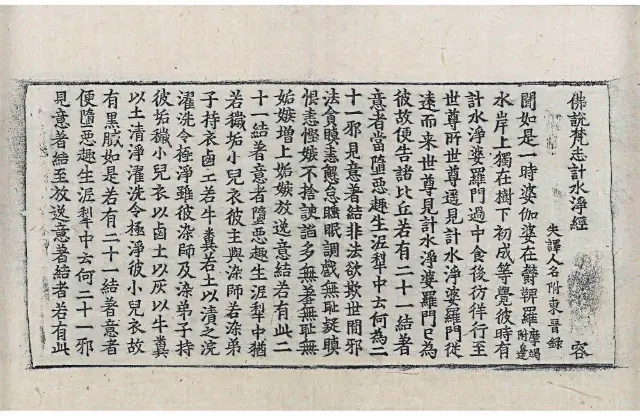 佛說梵志計水淨經 容
失譯人名附東晉錄
聞如是一時婆伽婆在欝鞞羅摩竭附邊
水岸上獨在樹下初成等覺彼時有
計水淨婆羅門過中食後彷徉行至
世尊所世尊遙見計水淨婆羅門從
遠而来世尊見計水淨婆羅門已為
彼故便告諸比丘若有二十一結著
意者當墮惡趣生泥犁中云何為二
十一邪見意著結非法欲欺世間邪
法貪瞋恚懈怠睡眠調戲無恥疑瞋
恨恚慳嫉不捨諛諂多無羞無恥無
妬嫉增上妬嫉放逸意結若有此二
十一結著意者墮惡趣生泥犁中猶
若穢垢小兒衣彼主與染師若染弟
子持衣鹵土若牛糞若土以漬之浣
濯洗令極淨雖彼染師及染弟子持
彼垢穢小兒衣以鹵土以灰以牛糞
以土漬淨濯洗令極淨彼小兒衣故
有黑膩如是若有二十一結著意者
便墮惡趣生泥犁中云何二十一邪
見意著結至放逸意著結者若有此